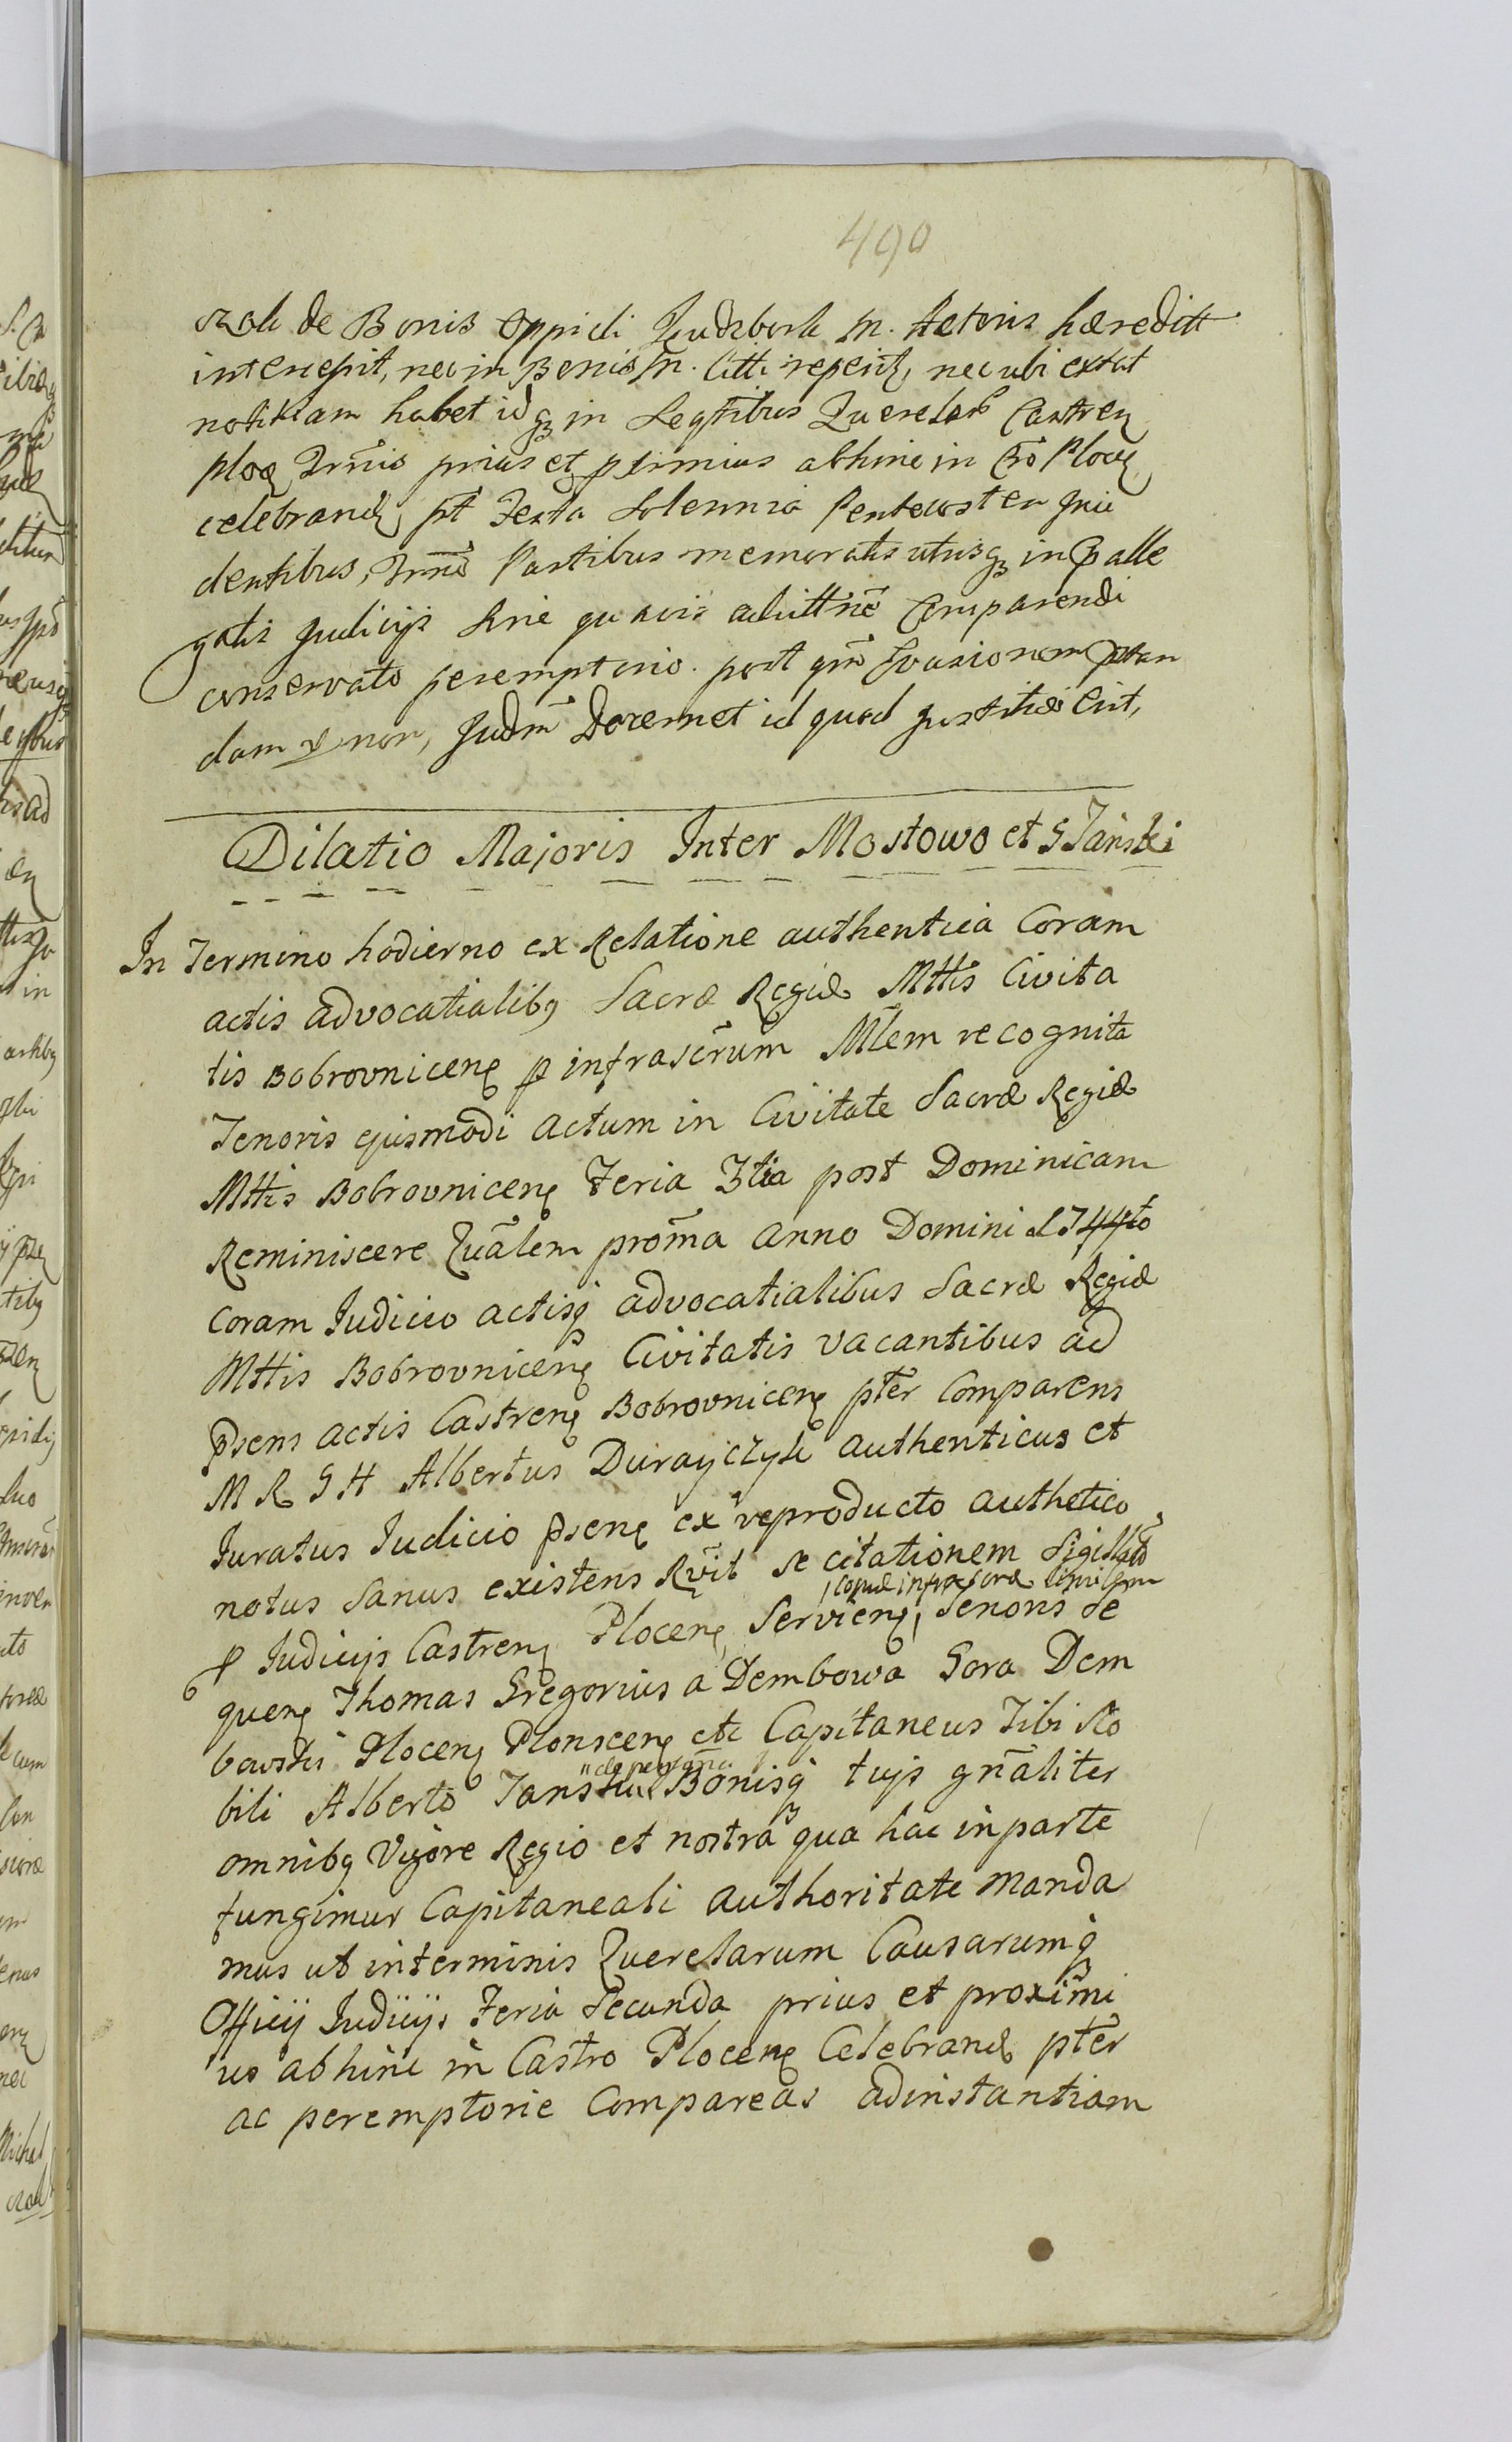 490
de Bonis Oppidi M. Actoris hæreditt
intercepit, nec in Bonis M. Citti reperit, nec ubi extat
notitiam habet idq in Seqtibus Querelar Castren
Ploc Trnis prius et pximius abhinc in Cro Plocen
celebrand pt Festa Solennia Pentecosten Inci
dentibus, Trnū Partibus memoratis utrisq in p alle
gatis Judicijs Sine quavis adcittne Comparendi
conservato peremptorio. post qm Evasionem ptan
dam v non, Judm Decernet id quod Justitiæ erit,
Dilatio Majoris Inter Mostowo et G Jański
In Termino hodierno ex Relatione authentica Coram
actis advocatialibq Sacræ Regiæ Mttis Civita
tis Bobrovnicen p infrascrūm Mlem recognita
Tenoris ejusmodi Actum in Civitate Sacræ Regiæ
Mttis Bobrovnicen Feria 3tia post Dominicam
Reminiscere Quālem prom̄a Anno Domini 1744to
Coram Judicio actisq advocatialibus Sacræ Regiæ
Mttis Bobrovnicen Civitatis vacantibus ad
psens actis Castren Bobrovnicen pter Comparens
M R G H Albertus authenticus et
Juratus Judicio psens ex reproducto authetico
notus Sanus existens Rvit se citationem Sigillato
Copiæ infra scræ
p Judicijs Castren Plocen Servien, Tenoris Se
quen Thomas Gregorius a Dembowa Gora Dem
bowski Plocen Plonscen etc Capitaneus Tibi No
de persona
bili Alberto Janski Bonisq tujs gnāliter
omnibq Vigore Regio et nostra qua hac in parte
fungimur Capitaneali authoritate Manda
mus ut in terminis Querelarum Causarumq
Officij Judicijs Feria Secunda prius et proximi
us abhinc in Castro Plocen Celebrand pter
ac peremptorie Compareas ad instantiam